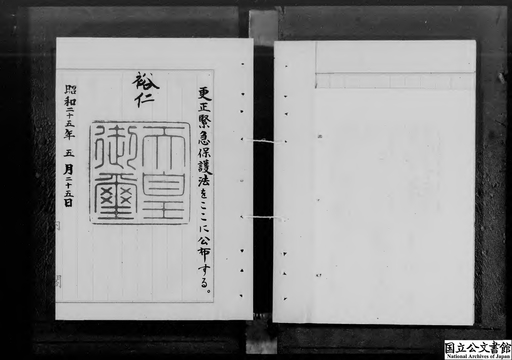 更正緊急保護法をここに公布する。
裕仁
天皇
御璽
昭和二十五年五月二十五日
国立公文書館
National Archives of Japan